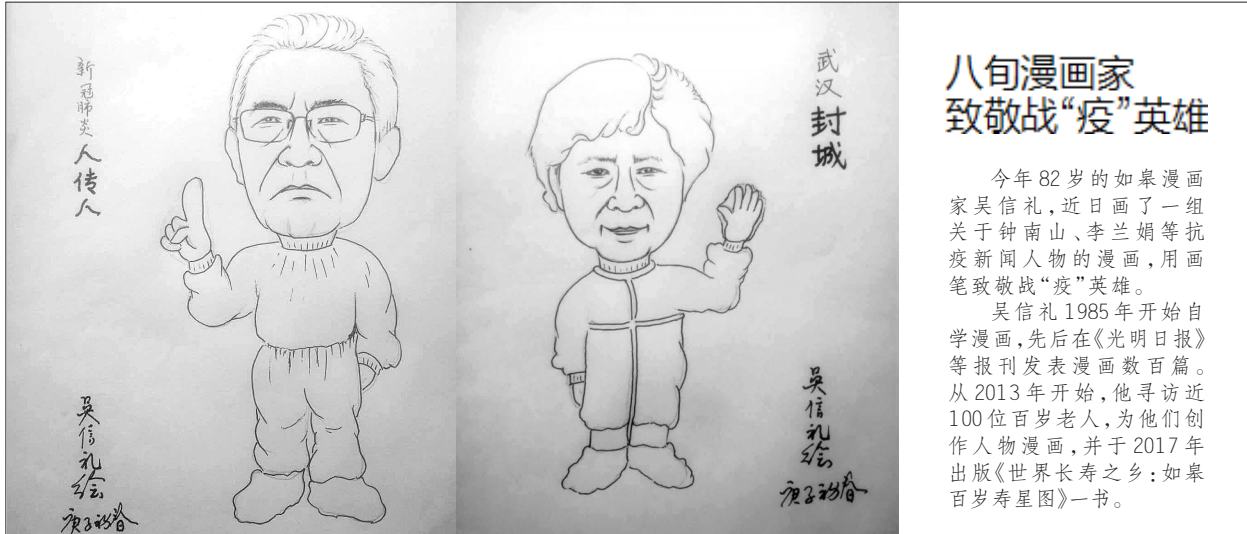 新冠肺炎人传人
吴信礼绘
庚子初春
武汉封城
吴信礼绘
庚子初春
八旬漫画家
致敬战“疫”英雄
今年82岁的如皋漫画
家吴信礼，近日画了一组
关于钟南山、李兰娟等抗
疫新闻人物的漫画，用画
笔致敬战“疫”英雄。
吴信礼1985年开始自
学漫画，先后在《光明日报》
等报刊发表漫画数百篇。
从2013年开始，他寻访近
100位百岁老人，为他们创
作人物漫画，并于2017年
出版《世界长寿之乡：如皋
百岁寿星图》一书。